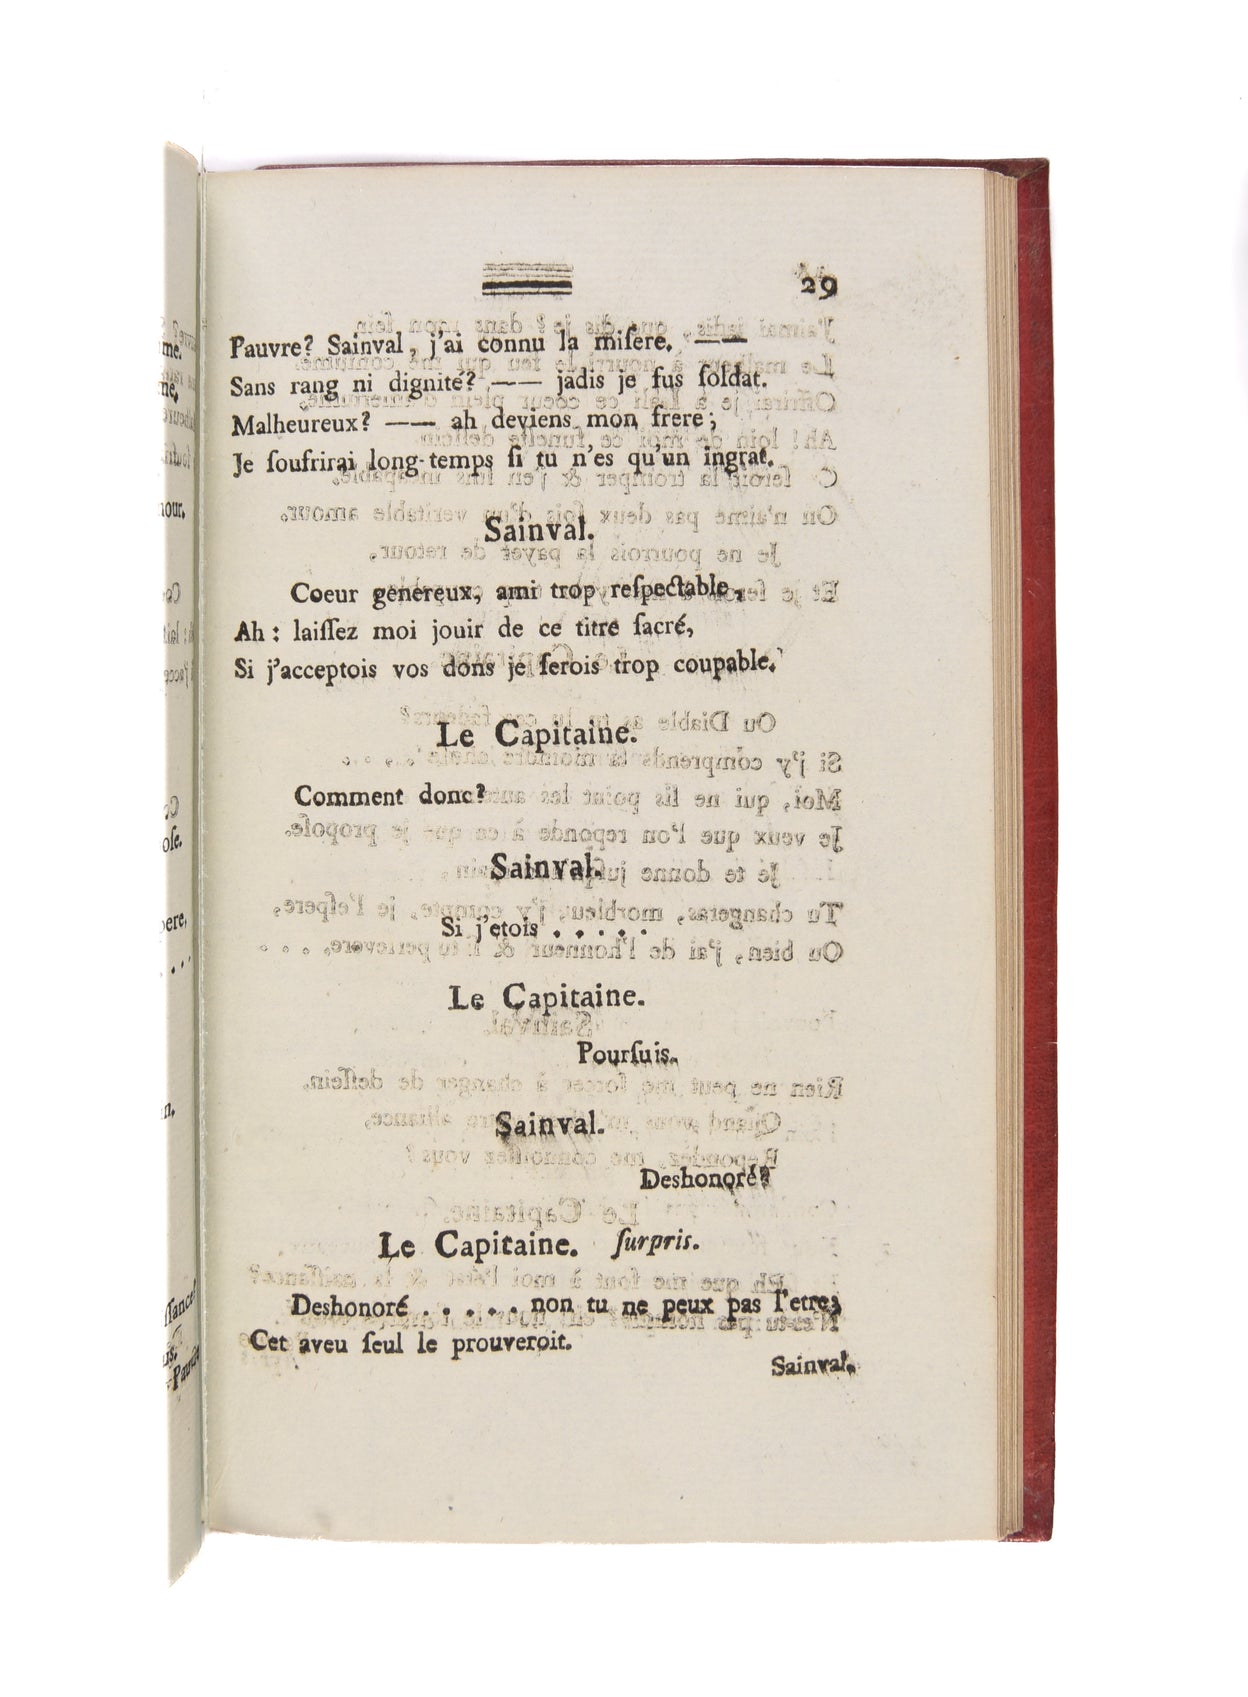 29
Pauvre? Sainval, j'ai connu la miſere. ——
Sans rang ni dignité? —— jadis je fus ſoldat.
Malheureux? —— ah deviens mon frere;
Je ſoufrirai long-temps ſi tu n'es qu'un ingrat.
Sainval.
Coeur genereux, ami trop reſpectable,
Ah: laiſſez moi jouir de ce titre ſacré,
Si j'acceptois vos dons je ſerois trop coupable.
Le Capitaine.
Comment donc?
Sainval.
Si j'etois . . . . .
Le Capitaine.
Pourſuis.
Sainval.
Deshonoré?
Le Capitaine. ſurpris.
Deshonoré . . . . . non tu ne peux pas l'etre;
Cet aveu ſeul le prouveroit.
Sainval.